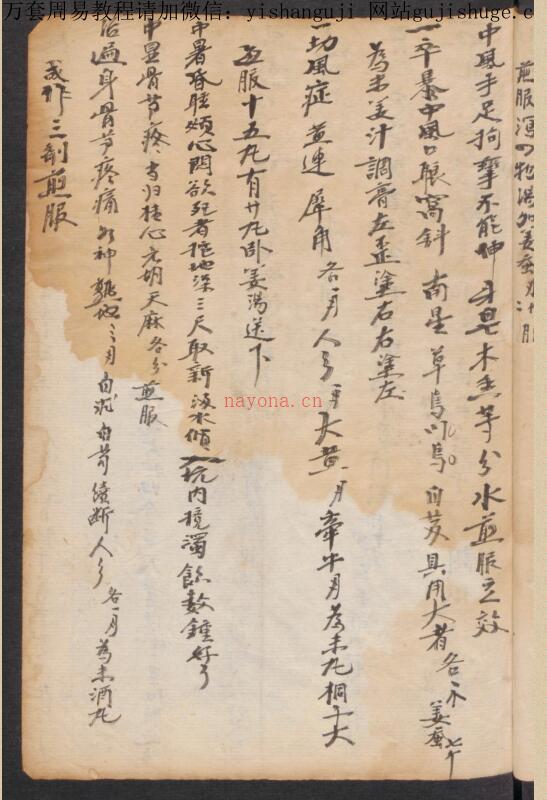 万套周易教程请加微信：yishanguji 网站gujishuge.c
煎服
中風手足拘攣不能伸 牙皂 木香等分水煎服立效
一卒暴中風口眼窩斜 南星 草烏 川烏 白芨 具用大者 各一 姜蚕七个
為末姜汁調膏左歪塗右右塗左
一切風症 黄連 犀角 各一 人 大黄 牽牛 為末丸桐子大
五服十五丸有廿九卧姜湯送下
中暑昏睡煩心悶欲死者挖地深三尺取新汲水傾入坑内攪濁飲数鍾好了
中濕骨节疼 当归 桂心 元胡 天麻各分煎服
治遍身骨节疼痛如神 熟地 白芍 續斷 人 各一 為末酒丸
或作三劑煎服
nayona.cn